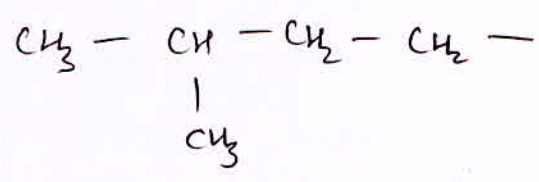 CH₃ — CH — CH₂ — CH₂ —
|
CH₃